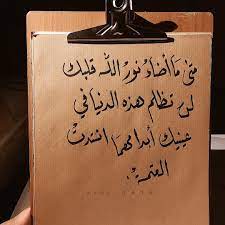 متى ما أضاء نور الله قلبك
لن تظلم هذه الدنيا في
عينيك أبدا مهما اشتدت
العتمة.